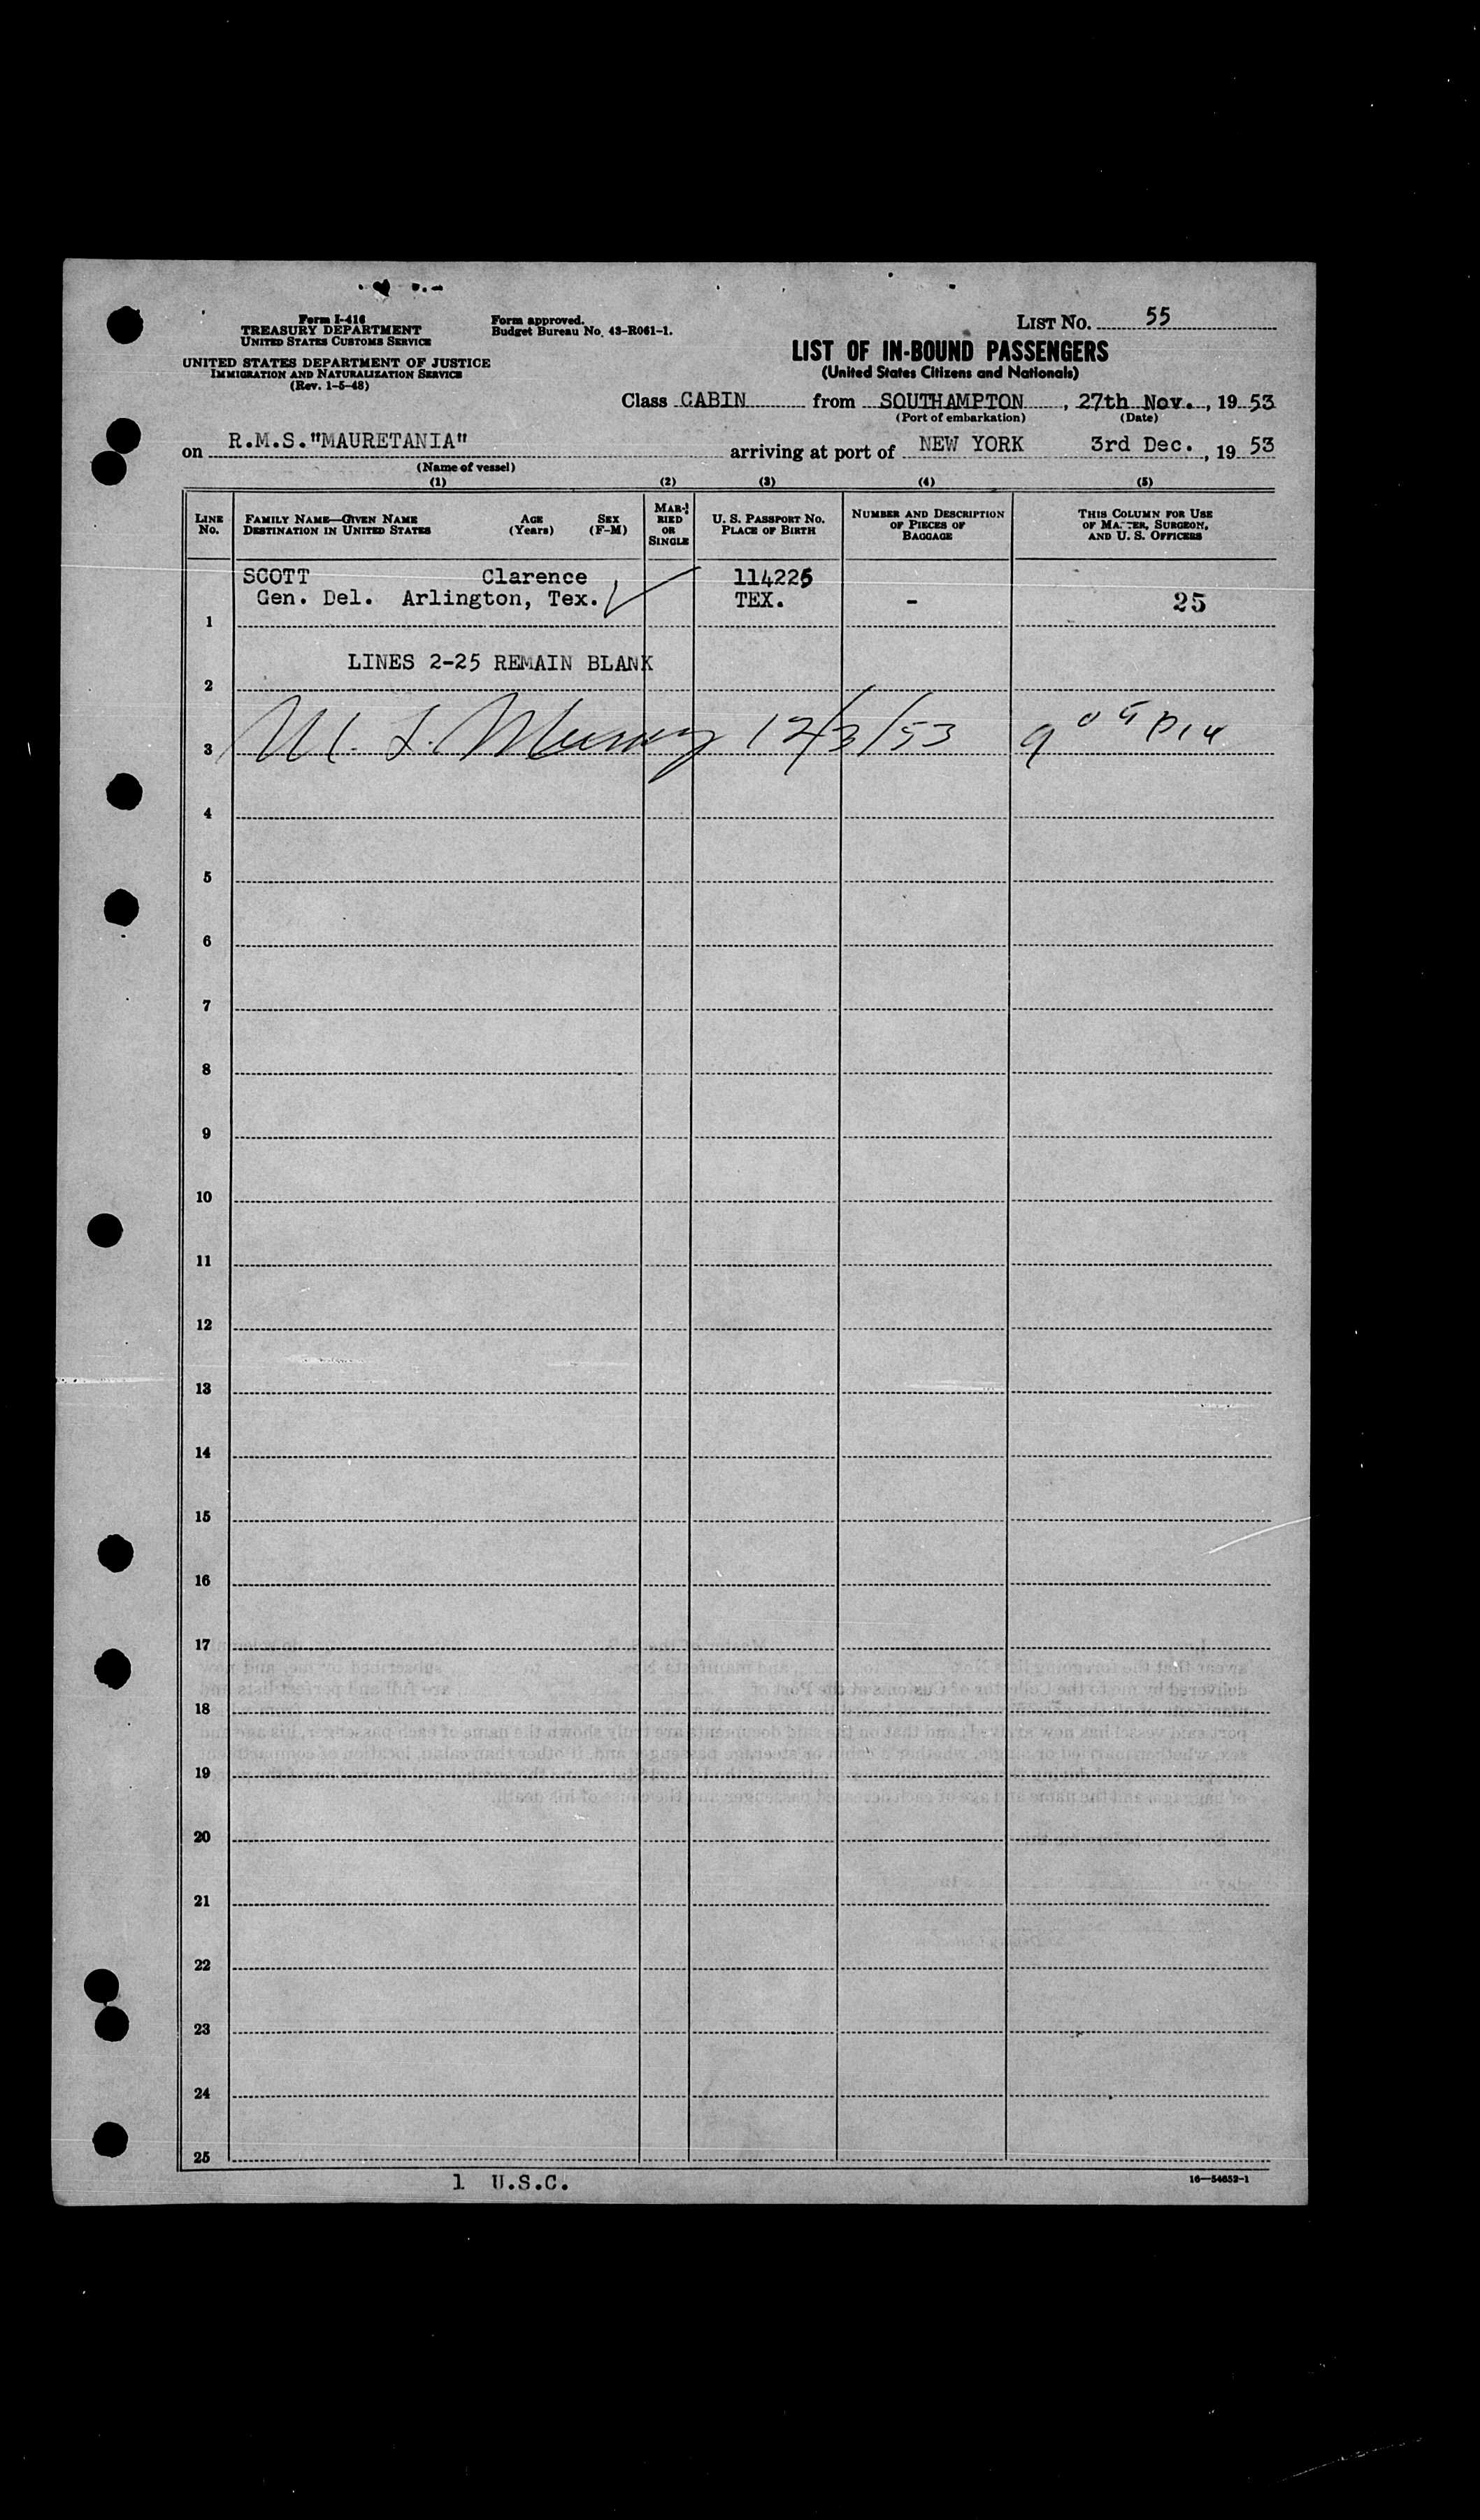 Form I-416
TREASURY DEPARTMENT
UNITED STATES CUSTOMS SERVICE
UNITED STATES DEPARTMENT OF JUSTICE
IMMIGRATION AND NATURALIZATION SERVICE
(Rev. 1-5-48)
Form approved.
Budget Bureau No. 43-R061-1.
LIST NO. 55
LIST OF IN-BOUND PASSENGERS
(United States Citizens and Nationals)
Class CABIN from SOUTHAMPTON, 27th Nov., 1953
(Port of embarkation) (Date)
on R.M.S."MAURETANIA" arriving at port of NEW YORK 3rd Dec., 1953
(Name of vessel)
(1) (2) (3) (4) (5)
LINE NO.
FAMILY NAME—GIVEN NAME AGE SEX
DESTINATION IN UNITED STATES (Years) (F-M)
MARRIED OR SINGLE
U. S. PASSPORT NO.
PLACE OF BIRTH
NUMBER AND DESCRIPTION
OF PIECES OF
BAGGAGE
THIS COLUMN FOR USE
OF MASTER, SURGEON,
AND U. S. OFFICERS
SCOTT Clarence 114225
Gen. Del. Arlington, Tex. TEX. - 25
1
LINES 2-25 REMAIN BLANK
2
M. L. Murray 12/3/53 9 05 PM
3
4
5
6
7
8
9
10
11
12
13
14
15
16
17
18
19
20
21
22
23
24
25
1 U.S.C.
16—54652-1